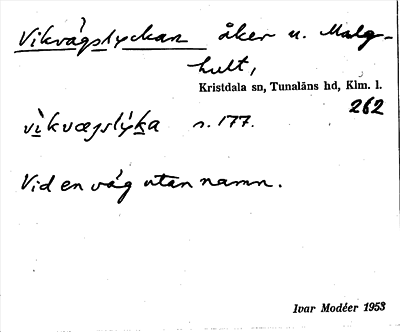 Vikvägslyckan åker u. Malg-
hult,
Kristdala sn, Tunaläns hd, Klm. l.
262
vìkvægslýka s. 177.
Vid en väg utan namn.
Ivar Modéer 1953